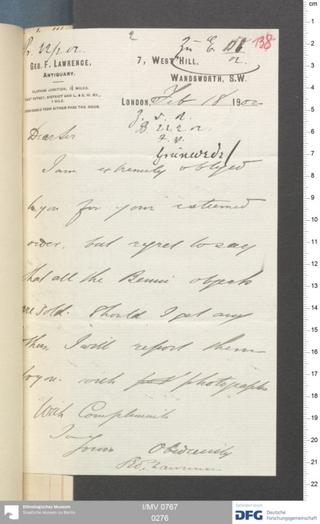 2
138
GEO. F. LAWRENCE,
ANTIQUARY.
7, WEST HILL,
WANDSWORTH, S.W.
LONDON, Feb 18 1900
Grünwedel
Dear Sir
I am extremely obliged
to you for your esteemed
order, but regret to say
that all the Benin objects
are sold. Should I get any
others I will report them
to you with photographs
With Compliments
I am
Yours Obediently
Geo. Lawrence
Ethnologisches Museum
Staatliche Museen zu Berlin
I/MV 0767
0276
DFG
Deutsche
Forschungsgemeinschaft
cm
1
2
3
4
5
6
7
8
9
10
11
12
13
14
15
16
17
18
19
20
21
22